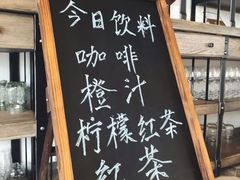 今日饮料
咖啡
橙汁
柠檬红茶
红茶